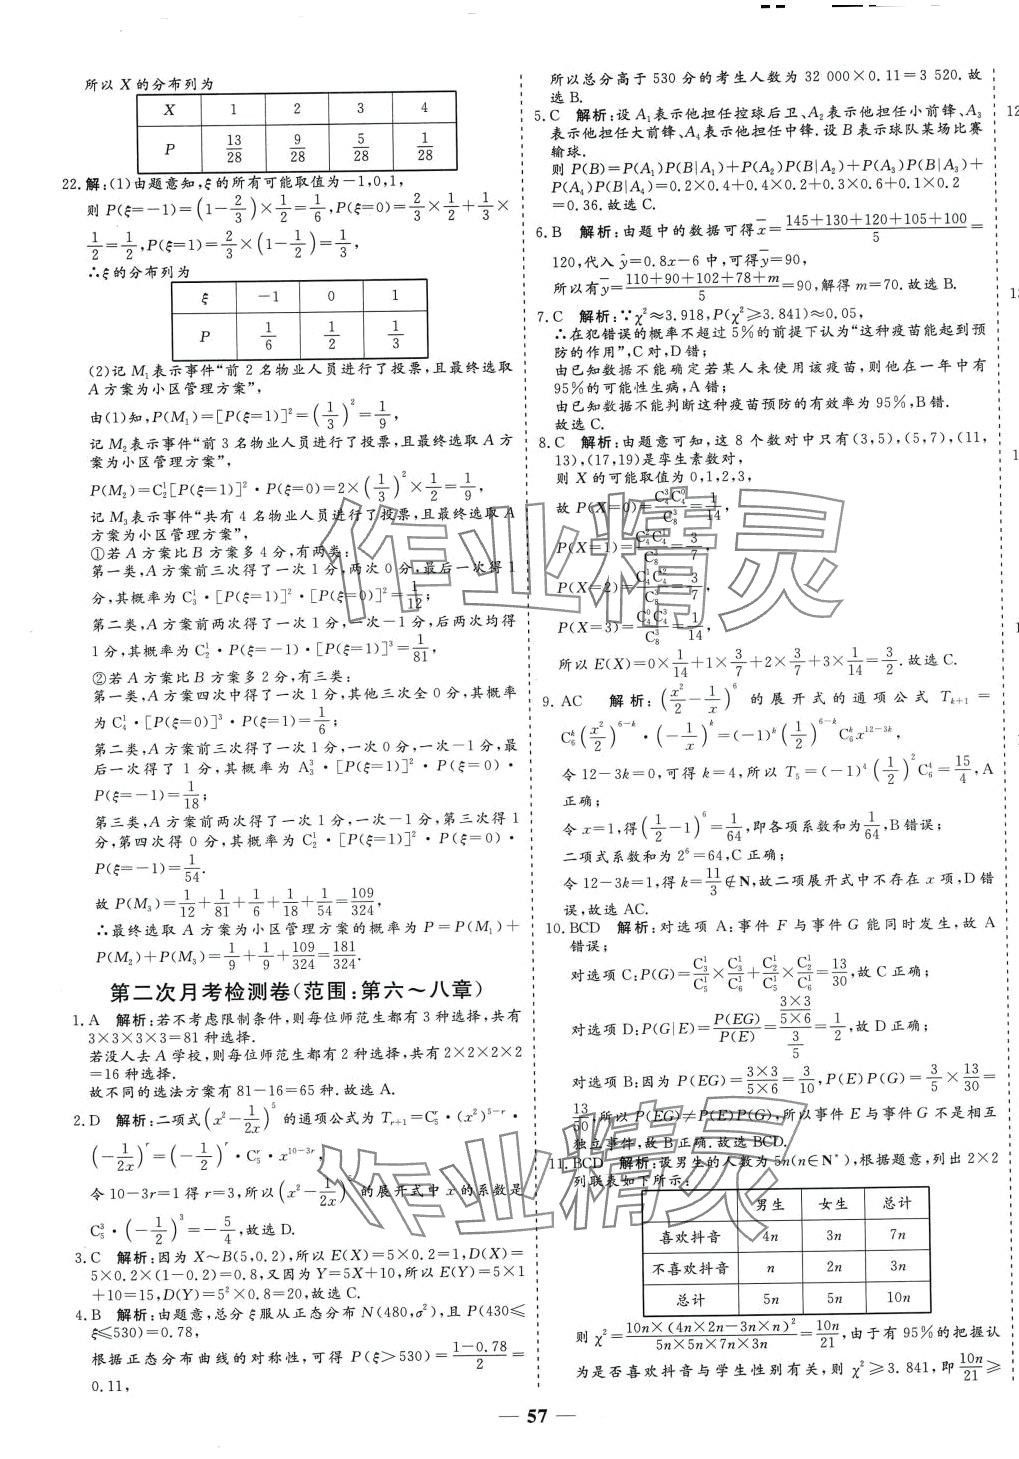 所以 X 的分布列为
X 1 2 3 4
P 13/28 9/28 5/28 1/28
22. 解:(1)由题意知,ξ的所有可能取值为-1,0,1,
则 P(ξ=-1)=(1-2/3)×1/2=1/6,P(ξ=0)=2/3×1/2+1/3×
1/2=1/2,P(ξ=1)=2/3×(1-1/2)=1/3,
∴ξ的分布列为
ξ -1 0 1
P 1/6 1/2 1/3
(2)记 M₁表示事件“前 2 名物业人员进行了投票,且最终选取
A方案为小区管理方案”,
由(1)知,P(M₁)=[P(ξ=1)]²=(1/3)²=1/9,
记 M₂表示事件“前 3 名物业人员进行了投票,且最终选取 A 方
案为小区管理方案”,
P(M₂)=C₂¹[P(ξ=1)]²·P(ξ=0)=2×(1/3)²×1/2=1/9,
记 M₃表示事件“共有 4 名物业人员进行了投票,且最终选取A
方案为小区管理方案”,
①若 A 方案比 B 方案多 4 分,有两类:
第一类,A 方案前三次得了一次 1 分,两次 0 分,最后一次得 1
分,其概率为 C₃¹·[P(ξ=1)]²·[P(ξ=0)]²=1/12;
第二类,A 方案前两次得了一次 1 分,一次-1 分,后两次均得
1分,其概率为 C₂¹·P(ξ=-1)·[P(ξ=1)]³=1/81,
②若 A 方案比 B 方案多 2 分,有三类:
第一类,A 方案四次中得了一次 1 分,其他三次全 0 分,其概率
为 C₄¹·[P(ξ=0)]³·P(ξ=1)=1/6;
第二类,A 方案前三次得了一次 1 分,一次 0 分,一次-1 分,最
后一次得了 1 分,其概率为 A₃³·[P(ξ=1)]²·P(ξ=0)·
P(ξ=-1)=1/18;
第三类,A 方案前两次得了一次 1 分,一次-1 分,第三次得 1
分,第四次得 0 分,其概率为 C₂¹·[P(ξ=1)]²·P(ξ=0)·
P(ξ=-1)=1/54.
故 P(M₃)=1/12+1/81+1/6+1/18+1/54=109/324,
∴最终选取 A 方案为小区管理方案的概率为 P=P(M₁)+
P(M₂)+P(M₃)=1/9+1/9+109/324=181/324.
第二次月考检测卷(范围:第六~八章)
1. A 解析:若不考虑限制条件,则每位师范生都有 3 种选择,共有
3×3×3×3=81 种选择.
若没人去 A 学校,则每位师范生都有 2 种选择,共有 2×2×2×2
=16 种选择.
故不同的选法方案有 81-16=65 种.故选 A.
2. D 解析:二项式(x²-1/2x)⁵的通项公式为 Tᵣ₊₁=C₅ʳ·(x²)⁵⁻ʳ·
(-1/2x)ʳ=(-1/2)ʳ·C₅ʳ·x¹⁰⁻³ʳ,
令 10-3r=1 得 r=3,所以(x²-1/2x)⁵的展开式中 x 的系数是
C₅³·(-1/2)³=-5/4,故选 D.
3. C 解析:因为 X~B(5,0.2),所以 E(X)=5×0.2=1,D(X)=
5×0.2×(1-0.2)=0.8,又因为 Y=5X+10,所以 E(Y)=5×1
+10=15,D(Y)=5²×0.8=20.故选 C.
4. B 解析:由题意,总分 ξ 服从正态分布 N(480,σ²),且 P(430≤
ξ≤530)=0.78,
根据正态分布曲线的对称性,可得 P(ξ>530)=(1-0.78)/2=
0.11,
所以总分高于 530 分的考生人数为 32 000×0.11=3 520.故
选 B.
5. C 解析:设 A₁表示他担任控球后卫、A₂表示他担任小前锋、A₃
表示他担任大前锋、A₄表示他担任中锋.设 B 表示球队某场比赛
输球.
则 P(B)=P(A₁)P(B|A₁)+P(A₂)P(B|A₂)+P(A₃)P(B|A₃)+
P(A₄)P(B|A₄)=0.2×0.4+0.4×0.2+0.3×0.6+0.1×0.2
=0.36.故选 C.
6. B 解析:由题中的数据可得x̄=(145+130+120+105+100)/5=
120,代入 ȳ=0.8x-6 中,可得ȳ=90,
所以有ȳ=(110+90+102+78+m)/5=90,解得 m=70.故选 B.
7. C 解析:∵χ²≈3.918,P(χ²≥3.841)≈0.05,
∴在犯错误的概率不超过 5%的前提下认为“这种疫苗能起到预
防的作用”,C 对,D 错;
由已知数据不能确定若某人未使用该疫苗,则他在一年中有
95%的可能性生病,A 错;
由已知数据不能判断这种疫苗预防的有效率为 95%,B 错.
故选 C.
8. C 解析:由题意可知,这 8 个数对中只有(3,5),(5,7),(11,
13),(17,19)是孪生素数对,
则 X 的可能取值为 0,1,2,3,
故 P(X=0)=C₄³C₄⁰/C₈³=1/14,
P(X=1)=C₄²C₄¹/C₈³=3/7,
P(X=2)=C₄¹C₄²/C₈³=3/7,
P(X=3)=C₄⁰C₄³/C₈³=1/14,
所以 E(X)=0×1/14+1×3/7+2×3/7+3×1/14=3/2.故选 C.
9. AC 解析:(x²/2-1/x)⁶的展开式的通项公式 Tₖ₊₁=
C₆ᵏ(x²/2)⁶⁻ᵏ·(-1/x)ᵏ=(-1)ᵏ(1/2)⁶⁻ᵏC₆ᵏx¹²⁻³ᵏ,
令 12-3k=0,可得 k=4,所以 T₅=(-1)⁴(1/2)²C₆⁴=15/4,A
正确;
令 x=1,得(1/2-1)⁶=1/64,即各项系数和为1/64,B 错误;
二项式系数和为 2⁶=64,C 正确;
令 12-3k=1,得 k=11/3∉N,故二项展开式中不存在 x 项,D 错
误,故选 AC.
10. BCD 解析:对选项 A:事件 F 与事件 G 能同时发生,故 A
错误;
对选项 C:P(G)=C₃¹/C₅¹×C₃¹/C₆¹+C₂¹/C₅¹×C₂¹/C₆¹=13/30,故 C 正确;
对选项 D:P(G|E)=P(EG)/P(E)=(3×3/5×6)/(3/5)=1/2,故 D 正确;
对选项 B:因为 P(EG)=3×3/5×6=3/10,P(E)P(G)=3/5×13/30=
13/50,所以 P(EG)≠P(E)P(G),所以事件 E 与事件 G 不是相互
独立事件,故 B正确.故选 BCD.
11. BCD 解析:设男生的人数为 5n(n∈N*),根据题意,列出 2×2
列联表如下所示:
男生 女生 总计
喜欢抖音 4n 3n 7n
不喜欢抖音 n 2n 3n
总计 5n 5n 10n
则 χ²=10n×(4n×2n-3n×n)²/5n×5n×7n×3n=10n/21,由于有 95%的把握认
为是否喜欢抖音与学生性别有关,则 χ²≥3.841,即10n/21≥
— 57 —
作业精灵
作业精灵